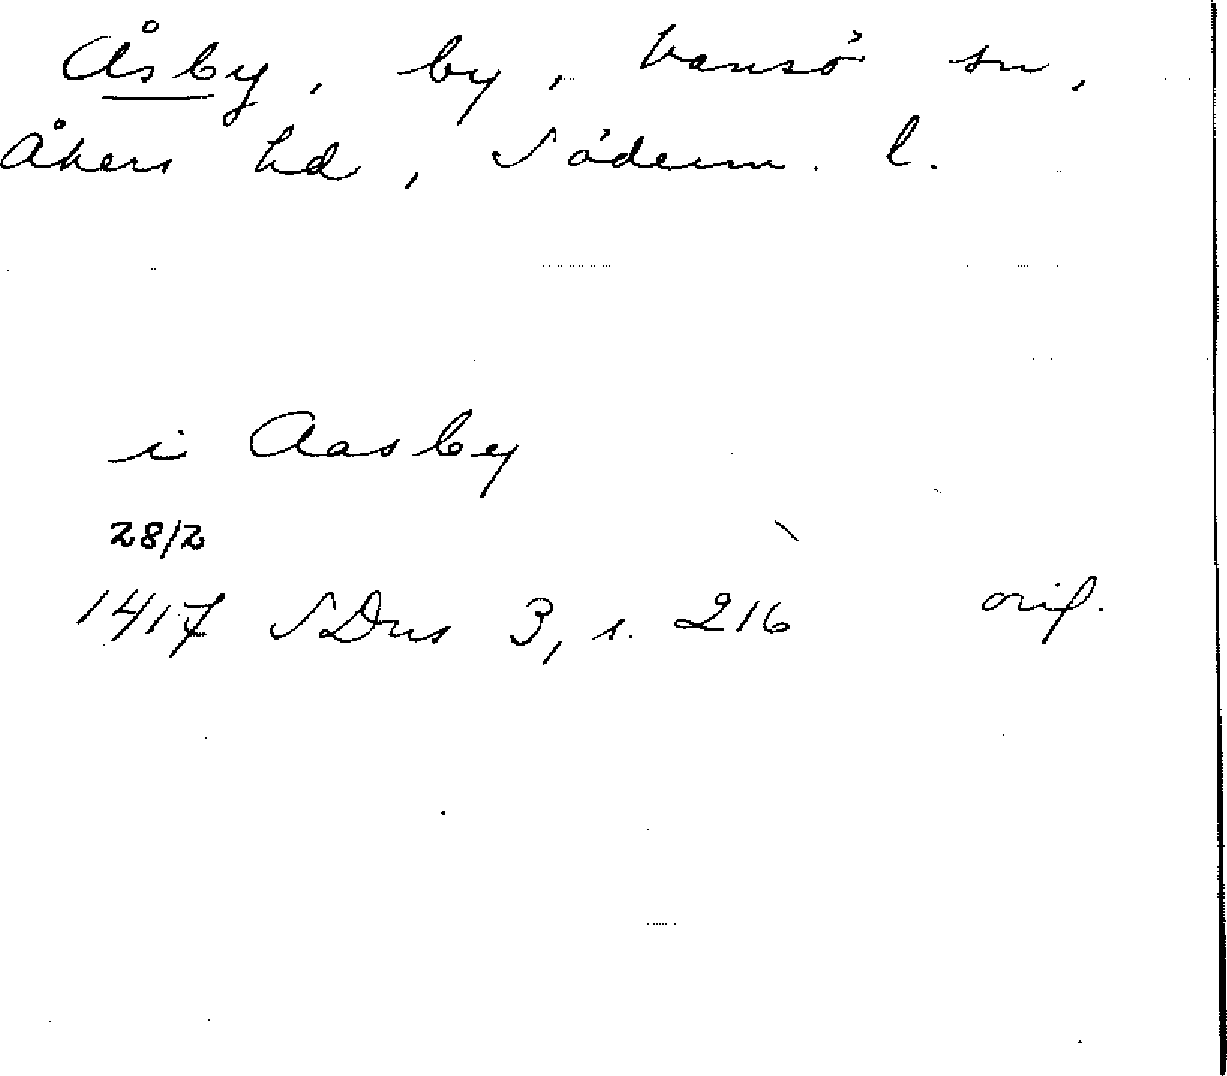 Åsby, by, Vansö sn,
Åkers hd, Söderm. l.
i Aasby
28/2
1417 SDns 3, s. 216 orig.